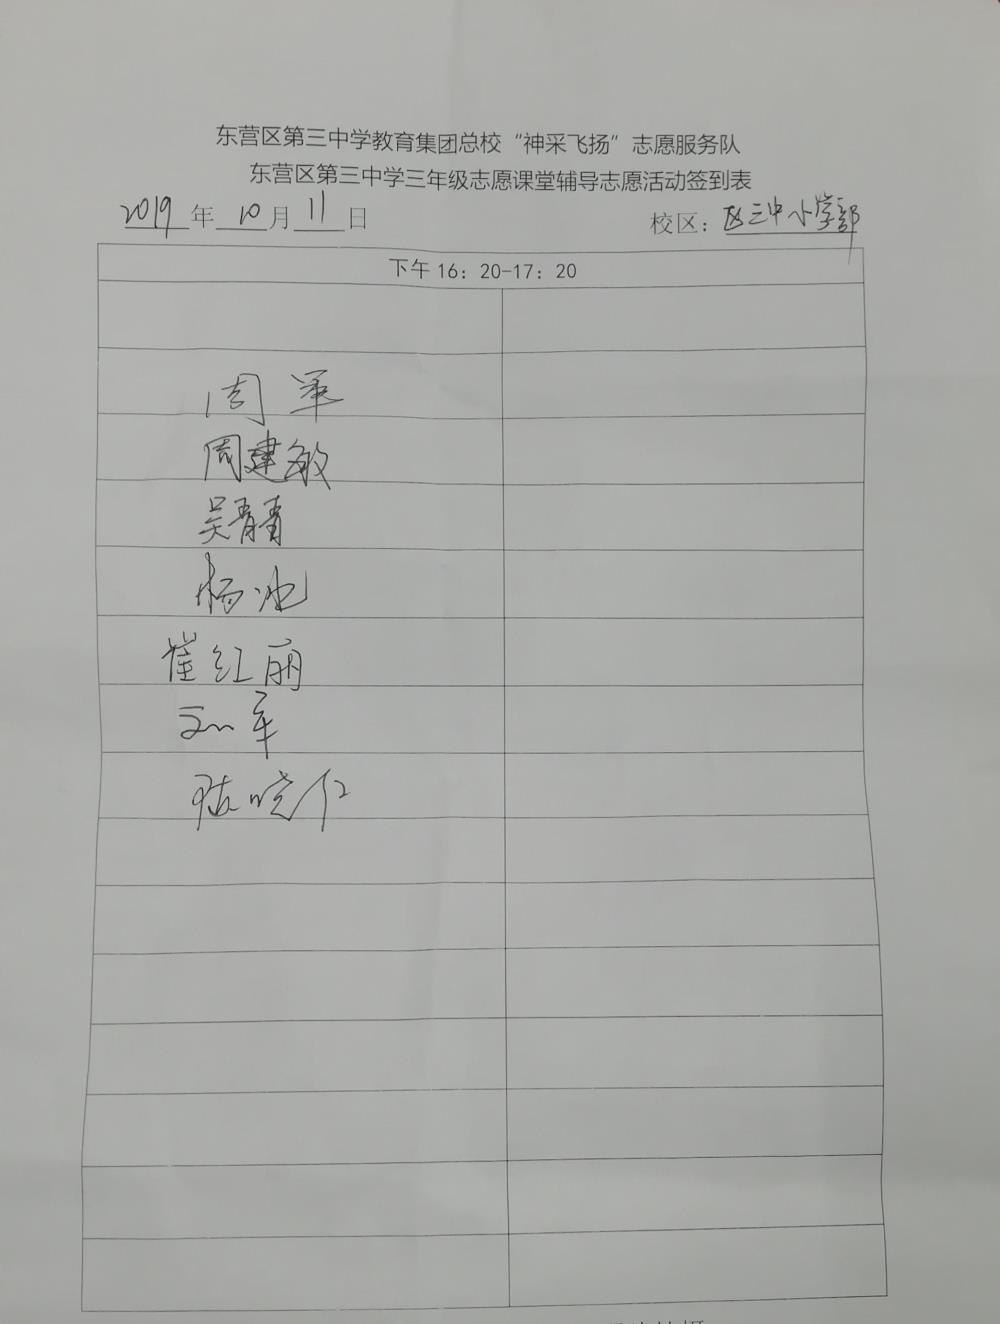 东营区第三中学教育集团总校“神采飞扬”志愿服务队
东营区第三中学三年级志愿课堂辅导志愿活动签到表
2019年10月11日 校区：区三中小学部
下午16：20-17：20
周军
周建敏
吴青青
杨冰
崔红丽